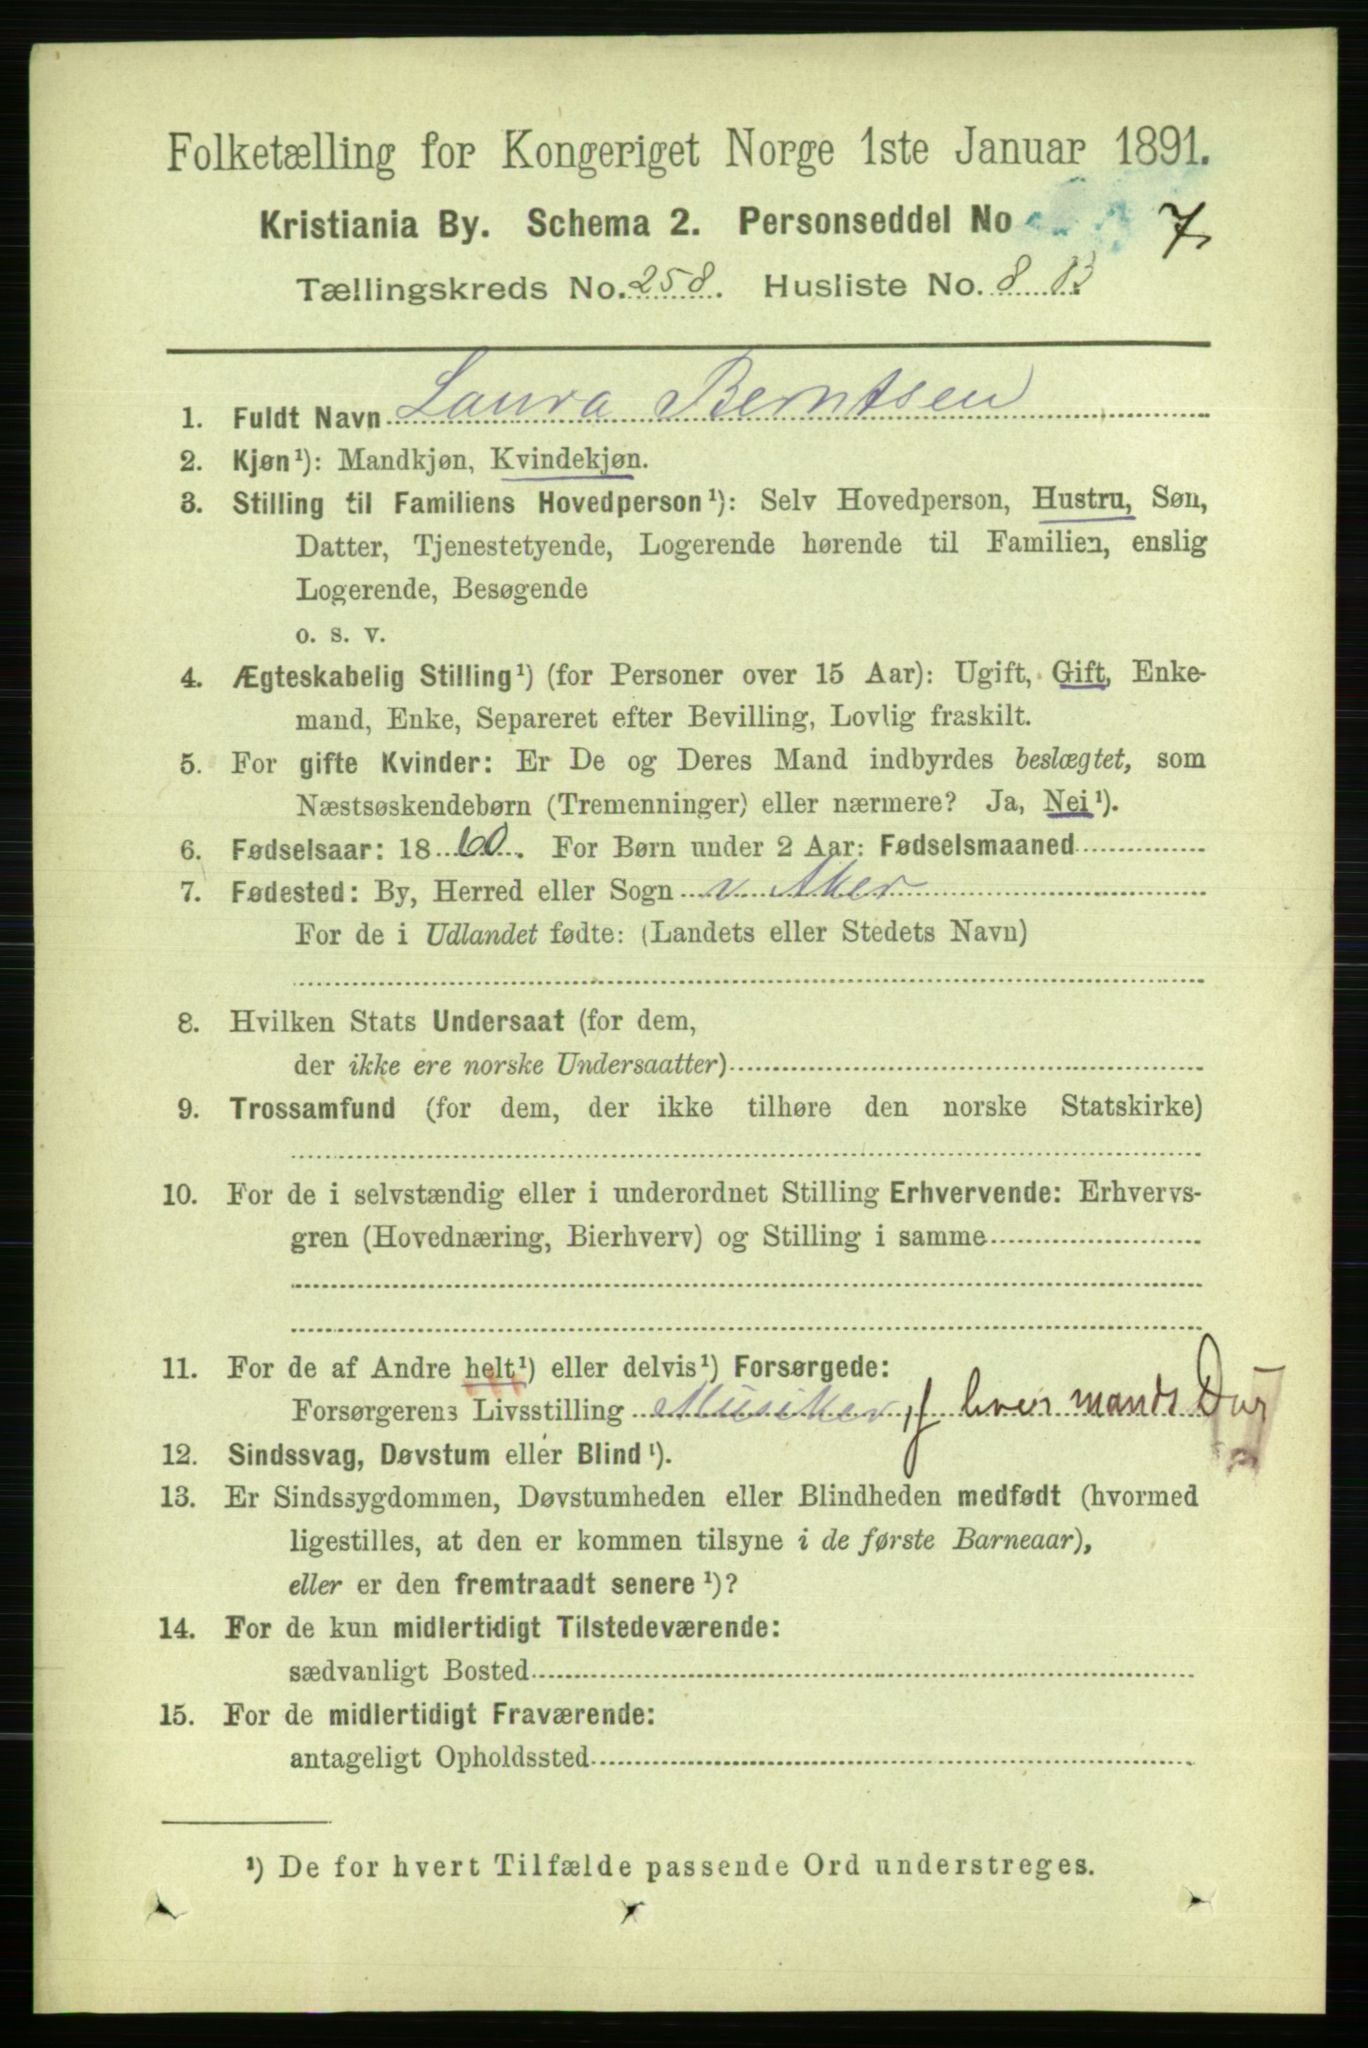 Folketælling for Kongeriget Norge 1ste Januar 1891.
Kristiania By. Schema 2. Personseddel No 7
Tællingskreds No. 258. Husliste No. 8 B
1. Fuldt Navn Laura Berntsen
2. Kjøn¹): Mandkjøn, Kvindekjøn.
3. Stilling til Familiens Hovedperson¹): Selv Hovedperson, Hustru, Søn,
Datter, Tjenestetyende, Logerende hørende til Familien, enslig
Logerende, Besøgende
o. s. v.
4. Ægteskabelig Stilling¹) (for Personer over 15 Aar): Ugift, Gift, Enke-
mand, Enke, Separeret efter Bevilling, Lovlig fraskilt.
5. For gifte Kvinder: Er De og Deres Mand indbyrdes beslægtet, som
Næstsøskendebørn (Tremenninger) eller nærmere? Ja, Nei¹).
6. Fødselsaar: 1860. For Børn under 2 Aar: Fødselsmaaned
7. Fødested: By, Herred eller Sogn v Aker
For de i Udlandet fødte: (Landets eller Stedets Navn)
8. Hvilken Stats Undersaat (for dem,
der ikke ere norske Undersaatter)
9. Trossamfund (for dem, der ikke tilhøre den norske Statskirke)
10. For de i selvstændig eller i underordnet Stilling Erhvervende: Erhvervs-
gren (Hovednæring, Bierhverv) og Stilling i samme
11. For de af Andre helt¹) eller delvis¹) Forsørgede:
Forsørgerens Livsstilling Musiker, f hver mands Dur
12. Sindssvag, Døvstum eller Blind¹).
13. Er Sindssygdommen, Døvstumheden eller Blindheden medfødt (hvormed
ligestilles, at den er kommen tilsyne i de første Barneaar),
eller er den fremtraadt senere¹)?
14. For de kun midlertidigt Tilstedeværende:
sædvanligt Bosted
15. For de midlertidigt Fraværende:
antageligt Opholdssted
¹) De for hvert Tilfælde passende Ord understreges.